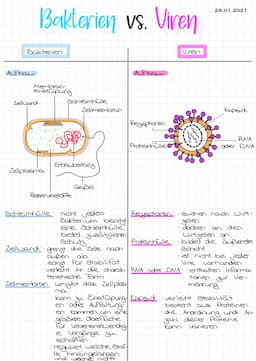 28.01.2021
Bakterien vs. Viren
Bakterien
Viren
Aufbau:
Aufbau:
Membran-
einstülpung
Zellwand
Schleimhülle
Zellmembran
Zellplasma
Erbsubstanz
Geißel
Reservestoffe
Kapsid
Rezeptoren
Proteinhülle
RNA
oder DNA
Schleimhülle
nicht jedes
Bakterium besitzt
eine Schleimhülle
bietet zusätzlichen
Schutz
Zellwand
grenzt die Zelle nach
außen ab
sorgt für Stabilität
verleiht ihr die charak-
teristische Form
Zellmembran
umgibt das Zellplas-
ma
kann zu Einstülpung-
en oder Auffaltung-
en kommen um eine
größere Oberfläche
für lebensnotwendig-
e Vorgänge zu
schaffen
reguliert welche Stof-
fe hineingelangen
Rezeptoren
suchen nach Wirt-
zellen
docken an den
Wirtzellen an
Proteinhülle
bildet die äußerste
Schicht
ist nicht bei jeder
Vire vorhanden
RNA oder DNA
enthalten Informa-
tionen zur Ver-
mehrung
Kapsid
verleiht Stabilität
besteht aus Proteinen
die Anordnung und A-
zahl dieser Proteine
kann variieren